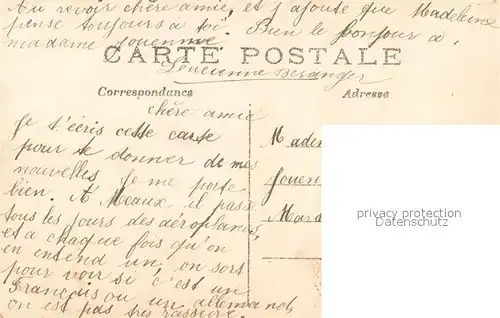 Au revoir chère amie, et j'ajoute que Madeleine
pense toujours à toi. Bien le bonjour à
madame Jouenne
CARTE POSTALE
Lucienne Beranger
Correspondance
Adresse
chère amie
Je t'écris cette carte
pour te donner de mes
nouvelles Je me porte
bien. A Meaux il passe
tous les jours des aéroplanes,
et a chaque fois qu'on
en entend un, on sors
pour voir si c'est un
Français ou un allemand,
on est pas très rassuré.
Madem
Jouen
Mar
privacy protection
Datenschutz